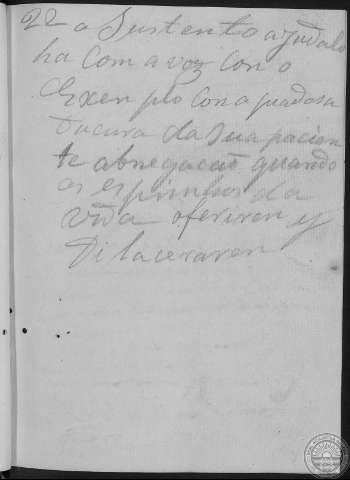 22 o Sustento ajudalo
ha Com a voz Con o
Exenplo Con a piadosa
Docura da sua pacien
te abnegacaõ quando
os espinhos da
vida oferiren y
Dilaceraren